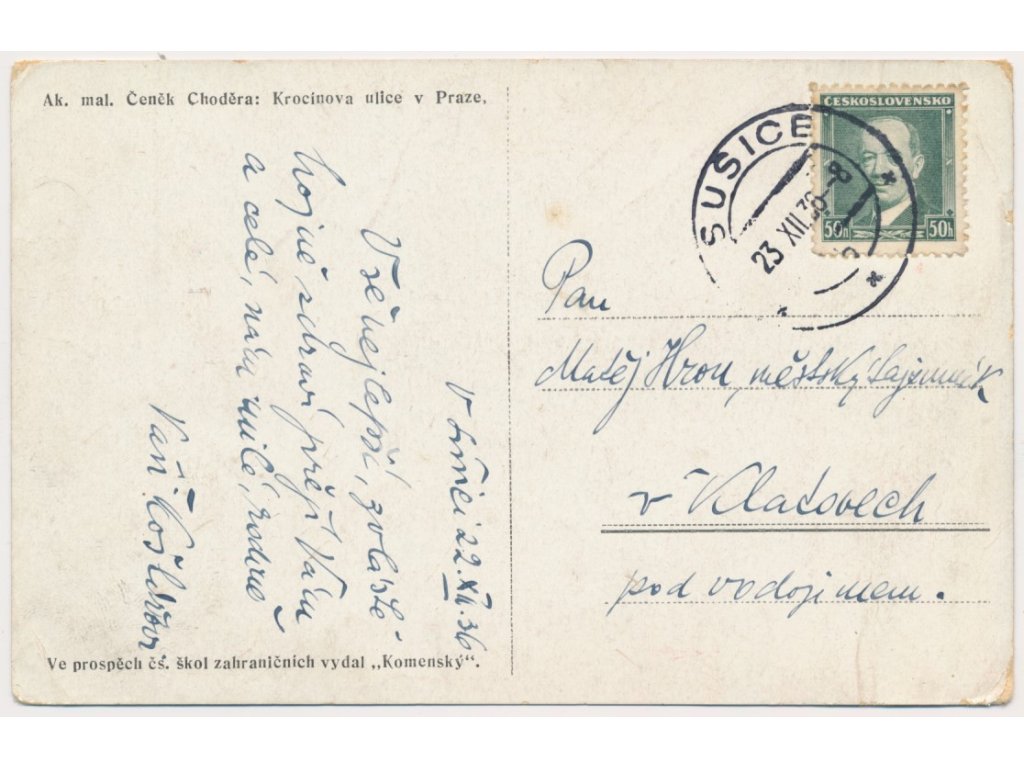 Ak. mal. Čeněk Choděra: Krocínova ulice v Praze.
V 22.XII.36
Vše nejlepší, zvláště
hojně zdraví přeji Vám
a celé, milé rodině
Váš
Ve prospěch čs. škol zahraničních vydal „Komenský".
ČESKOSLOVENSKO
50h 50h
SUŠICE
23 XII.36-8
Pan
Matěj Hron, městský tajemník
v Klatovech
pod vodojmem.